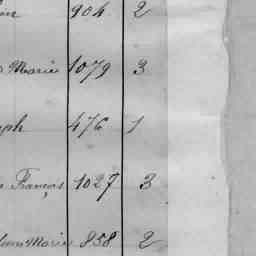 904 2
Marie 1079 3
ph 476 1
François 1027 3
Marie 858 2